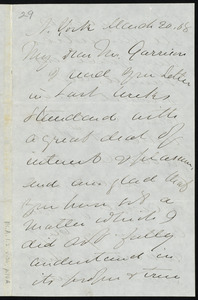 29
N. York March 20. 68
My dear Mr. Garrison
I read your letter
in last weeks
Standard with
a great deal of
interest & pleasure,
and am glad that
you have set a
matter which I
did not fully
understand in
its proper & true